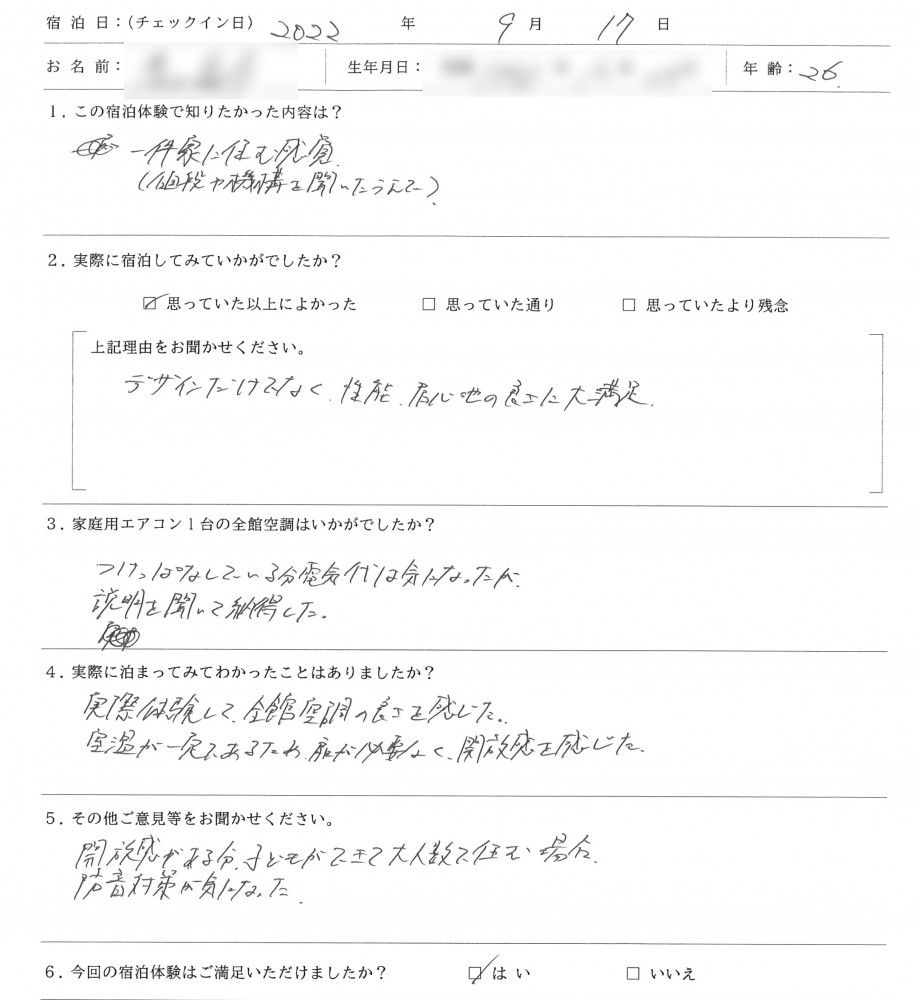 宿 泊 日：（チェックイン日） 2022 年 9 月 17 日
お 名 前： 生年月日： 年 齢： 26.
1．この宿泊体験で知りたかった内容は？
一件家に住む感覚.
(値段や機構を聞いたうえで).
2．実際に宿泊してみていかがでしたか？
☑ 思っていた以上によかった □ 思っていた通り □ 思っていたより残念
上記理由をお聞かせください。
デザインだけでなく、性能、居心地の良さに大満足.
3．家庭用エアコン1台の全館空調はいかがでしたか？
つけっぱなしている分電気代は気になったが、
説明を聞いて納得した。
4．実際に泊まってみてわかったことはありましたか？
実際体験して、全館空調の良さを感じた。
室温が一定であるため、扉が必要なく、開放感を感じた.
5．その他ご意見等をお聞かせください。
開放感がある分、子どもができて大人数で住む場合、
防音対策が気になった.
6．今回の宿泊体験はご満足いただけましたか？ ☑ は い □ いいえ